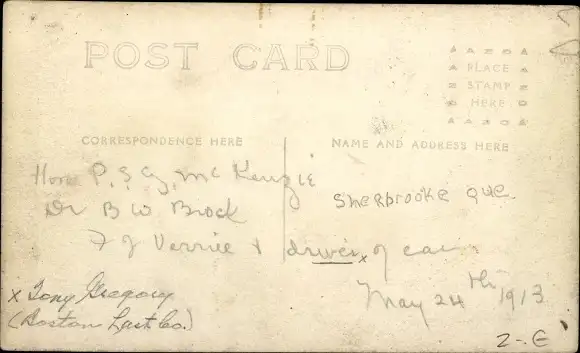 POST CARD
PLACE
STAMP
HERE
CORRESPONDENCE HERE
NAME AND ADDRESS HERE
Hon P. S. G. McKenzie
Sherbrooke Que.
Dr B W Brock
F J Verrie & driver x of car
May 24th 1913
x Tony Gregory
(Boston Last Co.)
2-E